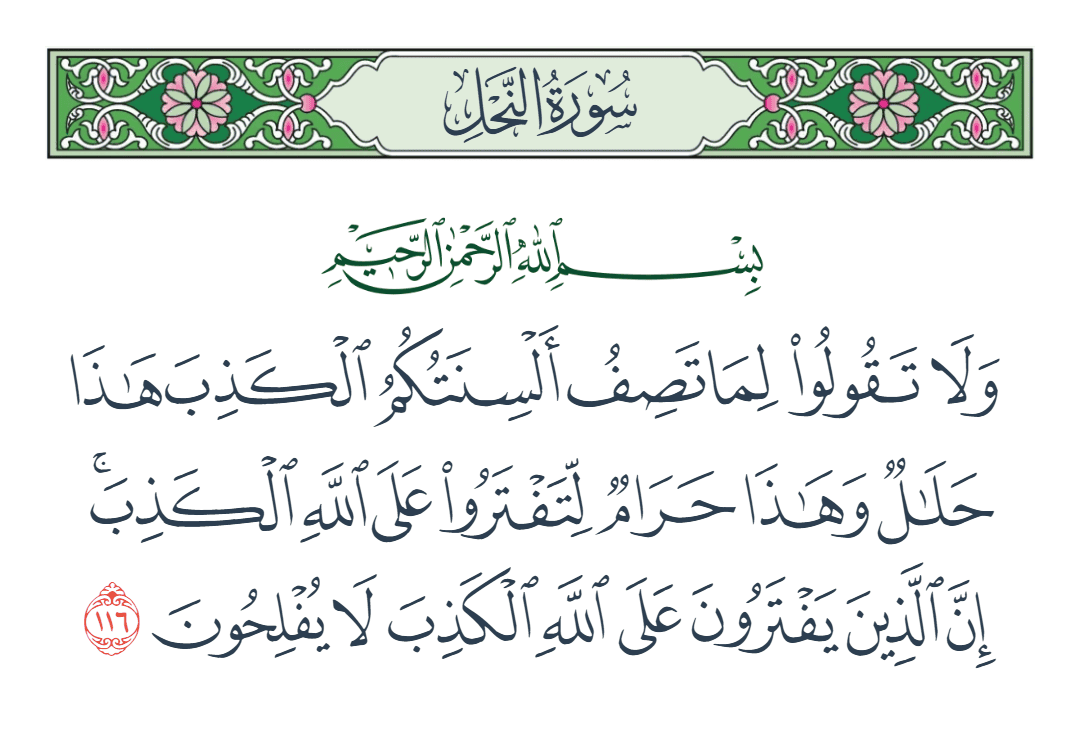 سُورَةُ النَّحْلِ
بِسْمِ ٱللَّهِ ٱلرَّحْمَٰنِ ٱلرَّحِيمِ
وَلَا تَقُولُوا۟ لِمَا تَصِفُ أَلْسِنَتُكُمُ ٱلْكَذِبَ هَٰذَا
حَلَٰلٌ وَهَٰذَا حَرَامٌ لِّتَفْتَرُوا۟ عَلَى ٱللَّهِ ٱلْكَذِبَ ۚ
إِنَّ ٱلَّذِينَ يَفْتَرُونَ عَلَى ٱللَّهِ ٱلْكَذِبَ لَا يُفْلِحُونَ ١١٦